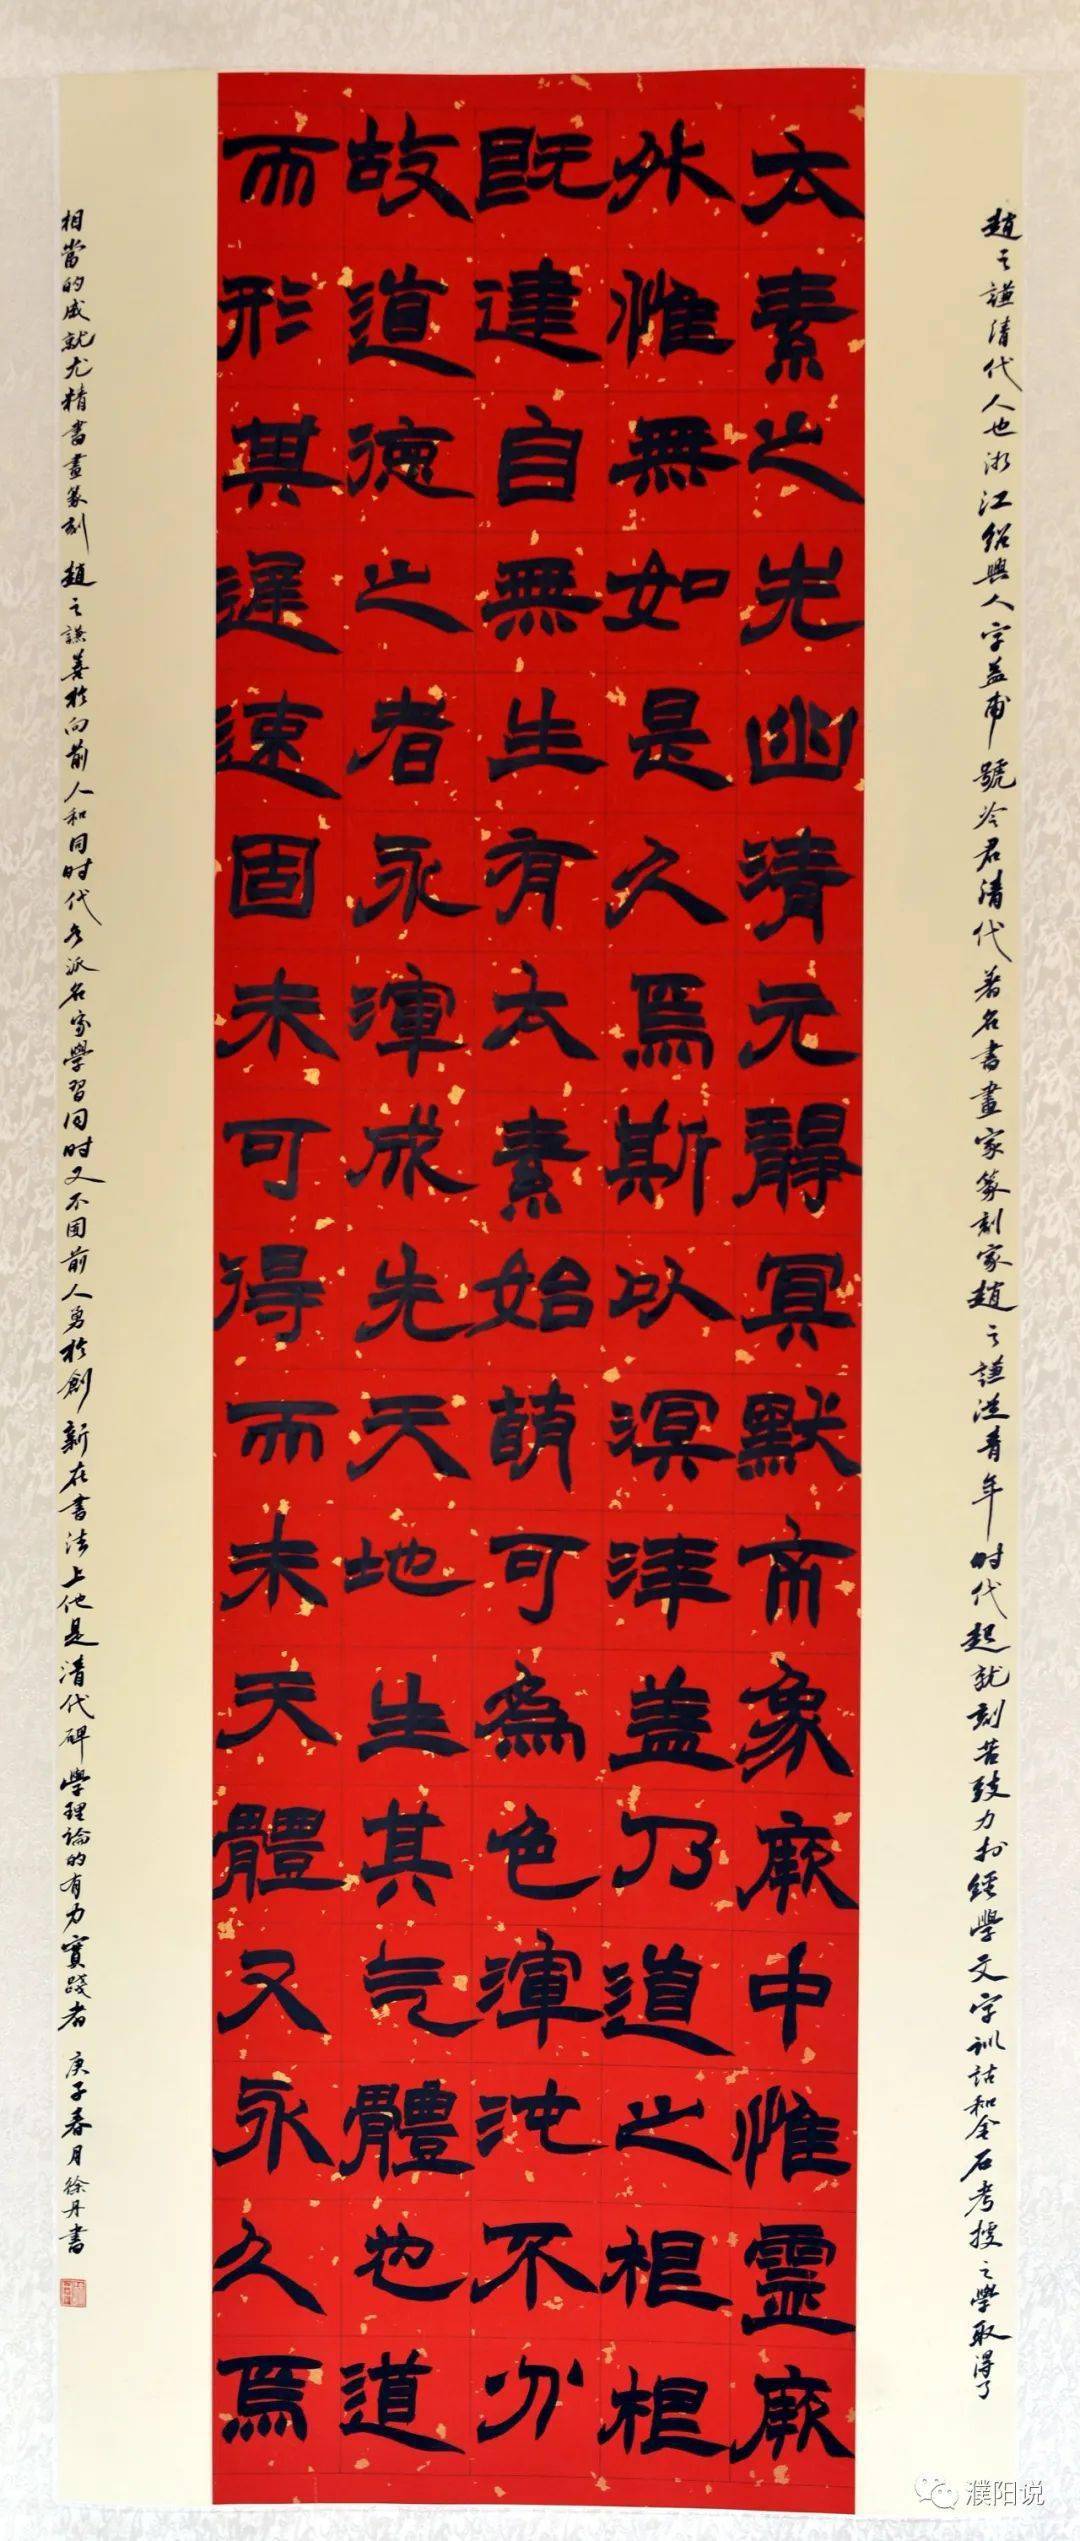 趙之謙清代人也浙江紹興人字益甫號冷君清代著名書畫家篆刻家趙之謙從青年时代起就刻苦致力於經學文字訓詁和金石考據之學取得了
太素之先幽清元靜冥默市象厥中惟靈厥
外惟無如是久焉斯以溟涬蓋乃道之根根
既建自無生有太素始萌可為色渾沌不分
故道德之者永渾成先天地生其气體也道
而形其遲速固未可得而未天體又永久焉
相當的成就尤精書畫篆刻趙之謙善於向前人和同时代各派名家學習同时又不囿前人勇於創新在書法上他是清代碑學理論的有力實踐者庚子春月徐丹書
濮阳说